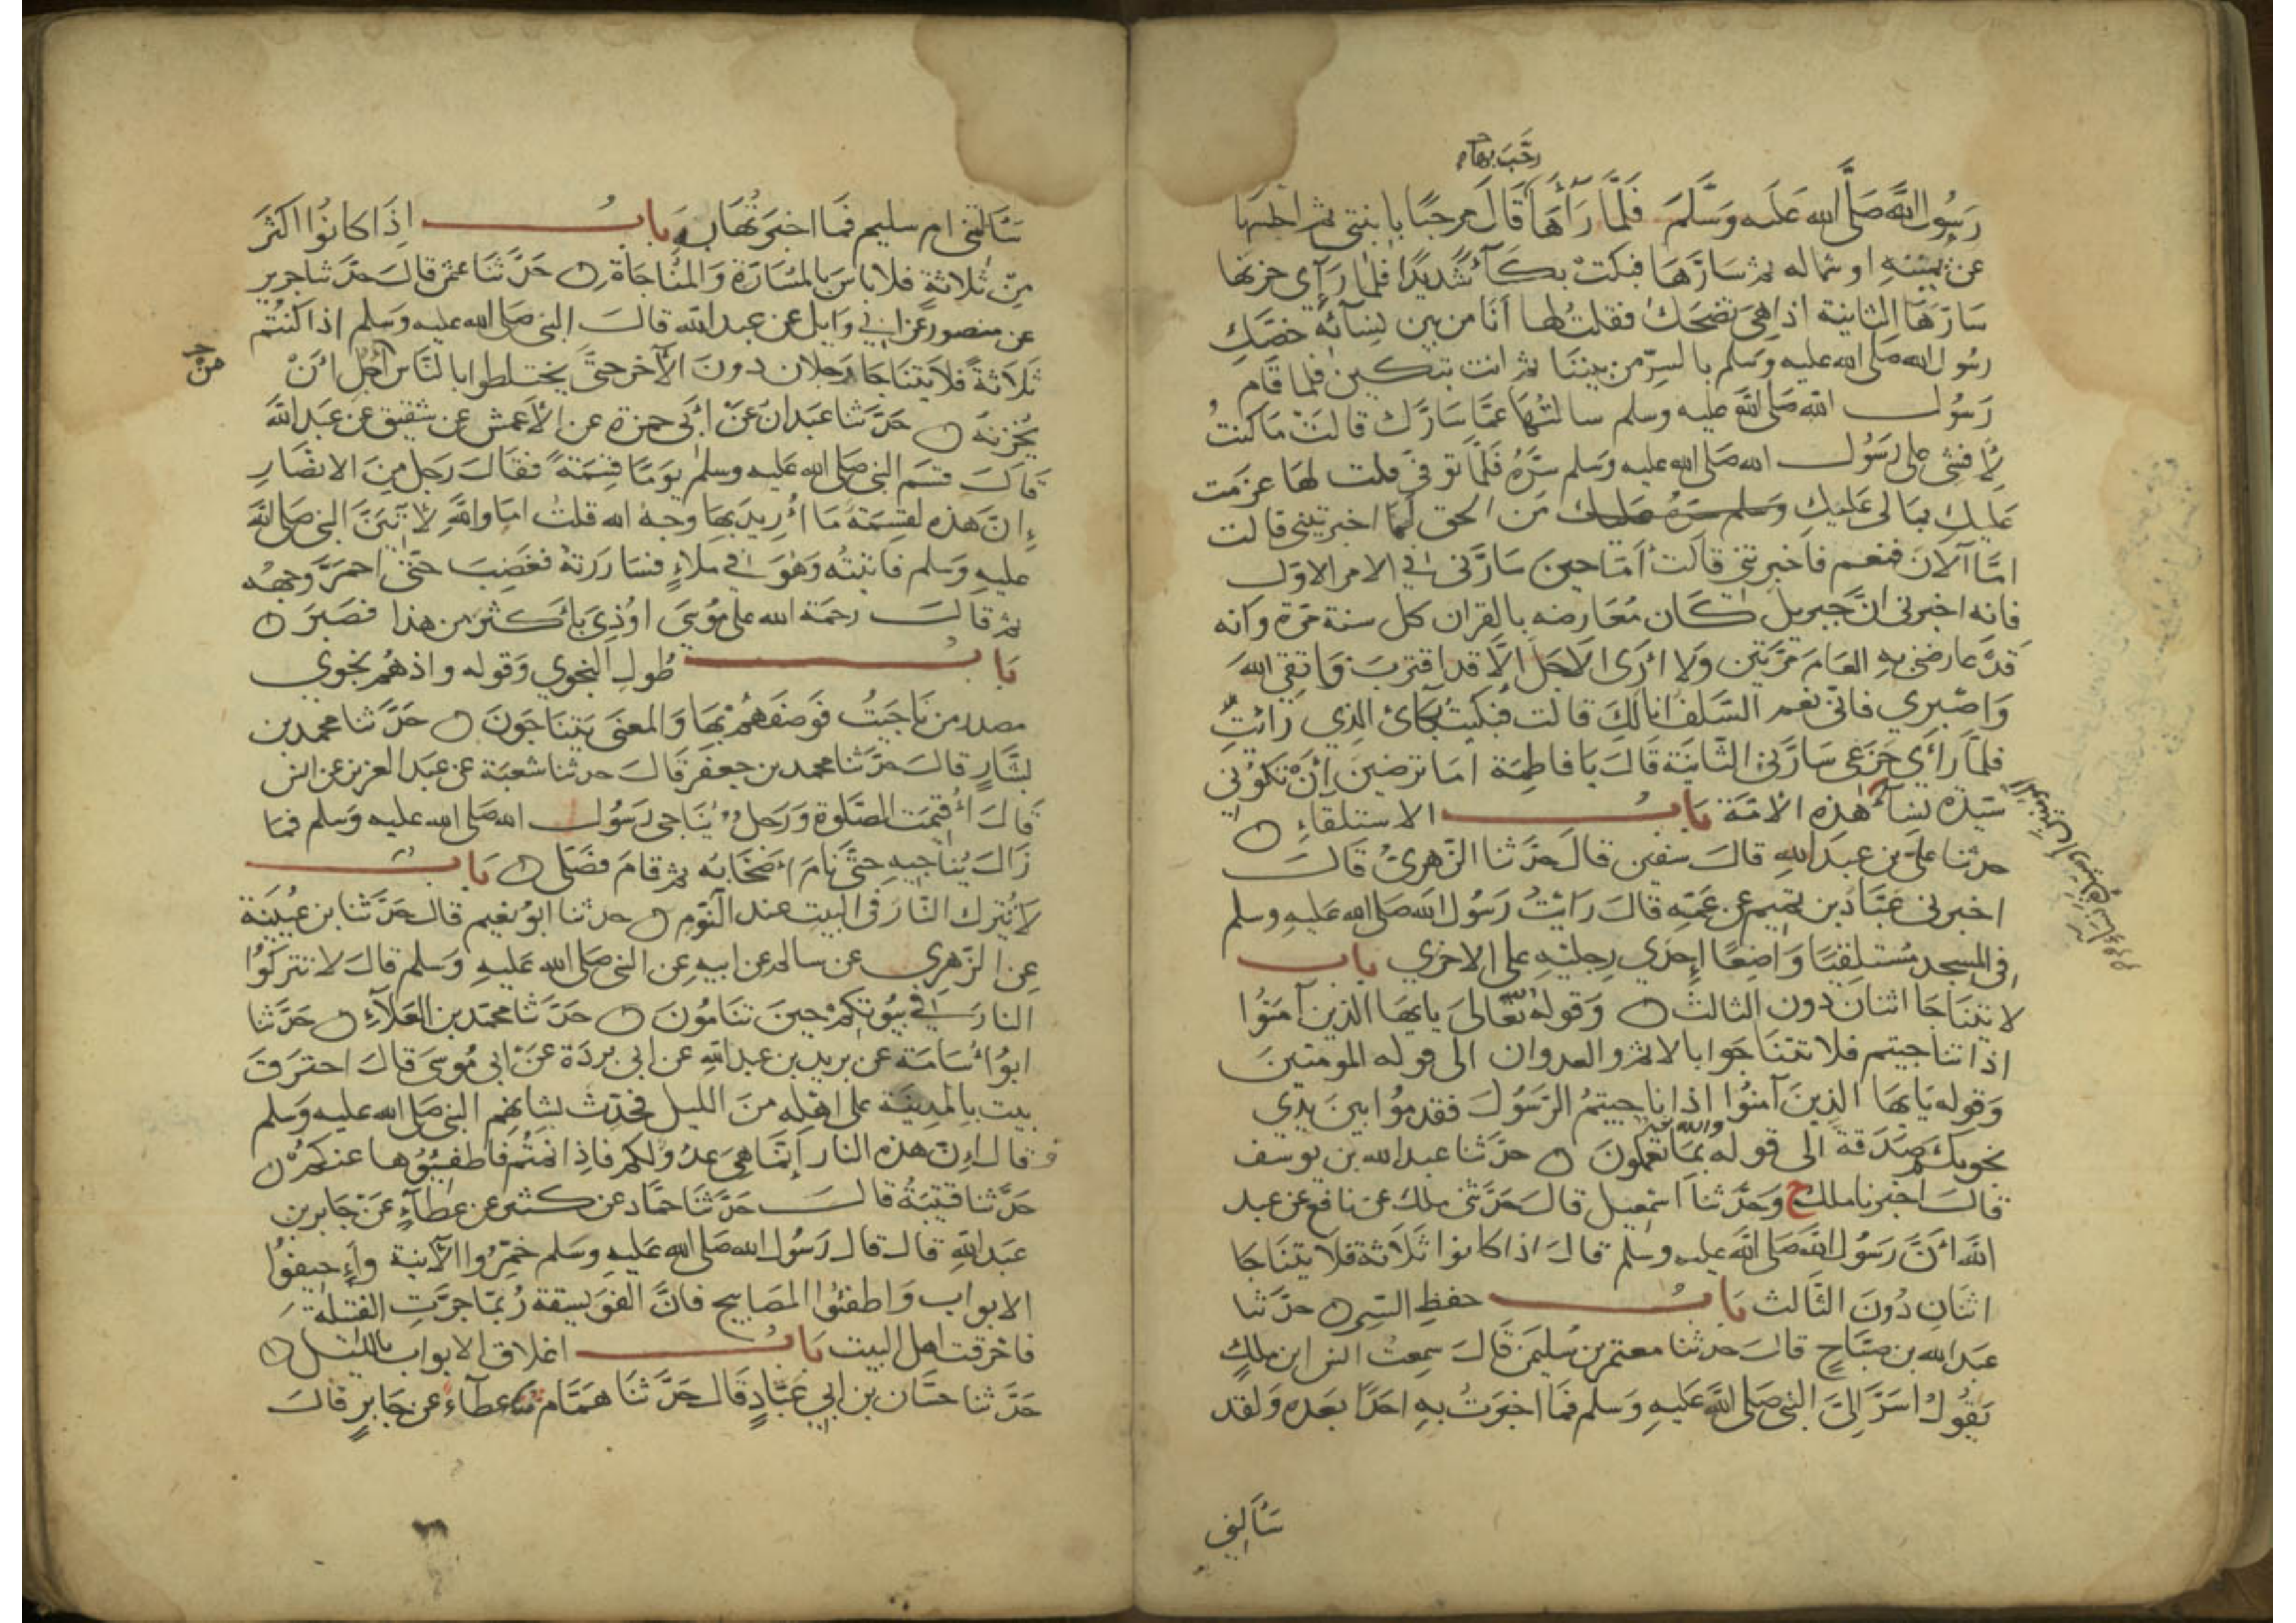 رحب بها
رسول الله صلى الله عليه وسلم فلما رآها قال مرحبا بابنتي ثم اجلسها
عن يمينه او شماله ثم سارها فبكت بكآء شديدا فلما رآى حزنها
سارها الثانية اذا هي تضحك فقلت لها أنا من بين نسائه خصك
رسول الله صلى الله عليه وسلم بالسر من بيننا ثم انت تبكين فلما قام
رسول الله صلى الله عليه وسلم سالتها عما سارك قالت ما كنت
لأفشي على رسول الله صلى الله عليه وسلم سره فلما توفي قلت لها عزمت
عليك بما لي عليك وسلم سره عليك من الحق لما اخبرتيني قالت
اما آلان فنعم فاخبرتني قالت أما حين سارني في الامر الاول
فانه اخبرني ان جبريل كان معارضه بالقران كل سنة مرة وانه
قد عارضني به العام مرتين ولا أرى الاجل الا قد اقترب فاتقي الله
واصبري فاني نعم السلف انا لك قالت فبكيت بكائ الذي رائت
فلما رأى جزعي سارني الثانية قال يا فاطمة اما ترضين أن تكوني
سيدة نسآء هذه الامة باب الاستلقاء
حدثنا علي بن عبد الله قال سفين قال حدثنا الزهري قال
اخبرني عباد بن تميم عن عمه قال رائت رسول الله صلى الله عليه وسلم
في المسجد مستلقيا واضعا إحدى رجليه على الاخرى باب
لا يتناجا اثنان دون الثالث وقوله تعالى يايها الذين آمنوا
اذا تناجيتم فلا تتناجوا بالاثم والعدوان الى قوله المومنين
وقوله يايها الذين آمنوا اذا ناجيتم الرسول فقدموا بين يدى
نجويكم صدقة الى قوله والله خبير بما تعملون حدثنا عبد الله بن يوسف
قال اخبرنا ملك ح وحدثنا اسمعيل قال حدثني ملك عن نافع عن عبد
الله أن رسول الله صلى الله عليه وسلم قال اذا كانوا ثلاثة فلا يتناجا
اثنان دون الثالث باب حفظ السر حدثنا
عبد الله بن صباح قال حدثنا معتمر بن سليمن قال سمعت انس ابن ملك
يقول اسر إلى النبي صلى الله عليه وسلم فما اخبرت به احدا بعده ولقد
سألتني
سألتني ام سليم فما اخبرتها به باب اذا كانوا اكثر
من ثلاثة فلا باس بالمسارة والمناجاة حدثنا عثمن قال حدثنا جرير
عن منصور عن ابي وايل عن عبد الله قال النبي صلى الله عليه وسلم اذا كنتم
ثلاثة فلا يتناجا رجلان دون الآخر حتى يختلطوا بالناس أجل ان
من
يحزنه حدثنا عبدان عن أبي حمزة عن الأعمش عن شقيق عن عبد الله
قال قسم النبي صلى الله عليه وسلم يوما قسمة فقال رجل من الانصار
إن هذه لقسمة ما أريد بها وجه الله قلت اما والله لآتين النبي صلى الله
عليه وسلم فاتيته وهو في ملاء فساررته فغضب حتى احمر وجهه
ثم قال رحمة الله على موسى اوذي بأكثر من هذا فصبر
باب طول النجوي وقوله واذ هم نجوي
مصدر من ناجيت فوصفهم بها والمعنى يتناجون حدثنا محمد بن
بشار قال حدثنا محمد بن جعفر قال حدثنا شعبة عن عبد العزيز عن انس
قال أقيمت الصلوة ورجل يناجي رسول الله صلى الله عليه وسلم فما
زال يناجيه حتى نام أصحابه ثم قام فصلى باب
لا يترك النار في البيت عند النوم حدثنا ابو نعيم قال حدثنا بن عيينة
عن الزهري عن سالم عن ابيه عن النبي صلى الله عليه وسلم قال لا تتركوا
النار في بيوتكم حين تنامون حدثنا محمد بن العلاء حدثنا
ابو أسامة عن بريد بن عبد الله عن ابي بردة عن ابي موسى قال احترق
بيت بالمدينة على اهله من الليل فحدث بشانهم النبي صلى الله عليه وسلم
فقال إن هذه النار إنما هي عدو لكم فاذا نمتم فاطفيؤها عنكم
حدثنا قتيبة قال حدثنا حماد عن كثير عن عطاء عن جابر بن
عبد الله قال قال رسول الله صلى الله عليه وسلم خمروا الآنية وأجيفوا
الابواب واطفئوا المصابيح فان الفويسقة ربما جرت الفتيلة
فاحرقت اهل البيت باب اغلاق الابواب بالليل
حدثنا حسان بن ابي عباد قال حدثنا همام عن عطاء عن جابر قال